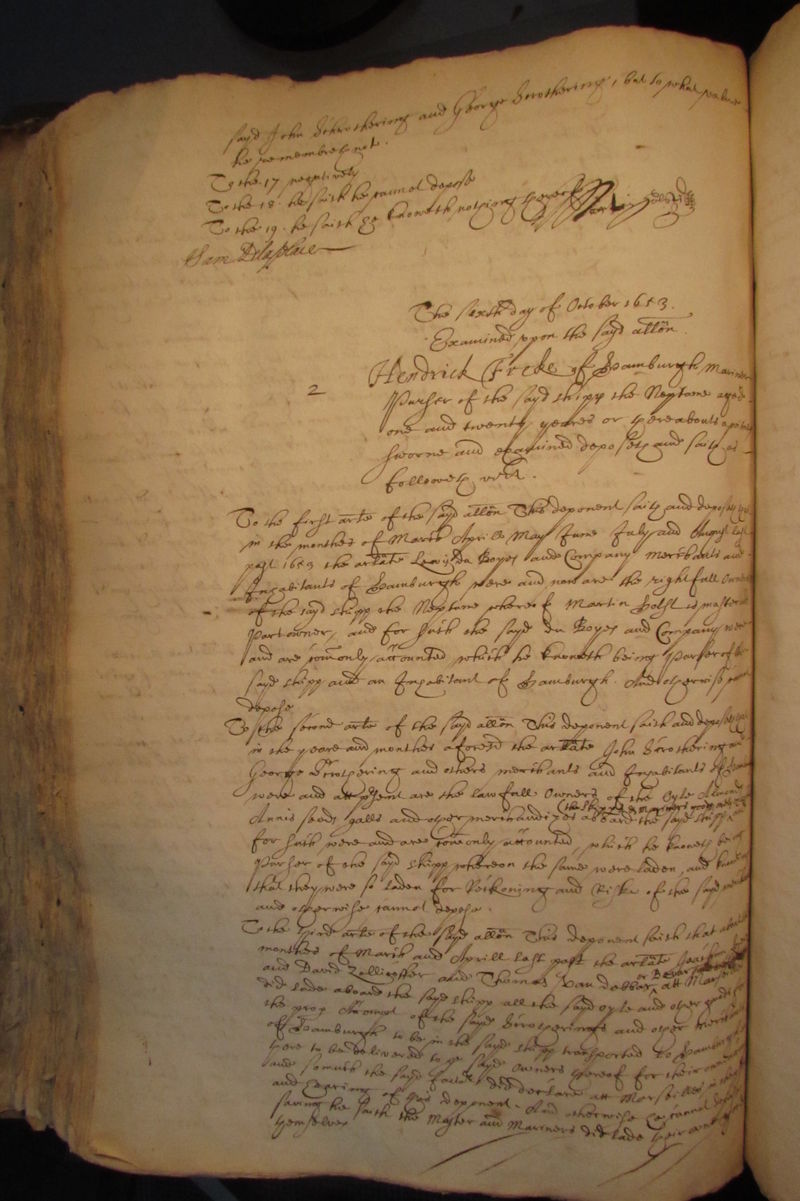 sayd John Schrotteriong and George Schrotteriong, but to what value
he remembreth not.
To the 17 negatively
To the 18. he saith he cannot depose
To the 19. he saith he knoweth nothing
Sam Delaplace
The sixth day of October 1653.
Examined upon the sayd allon.
2
Hendrick Freke of Hamburgh Mariner
Purser of the sayd shipp the Neptune aged
one and twenty yeares or thereabouts
sworne and examined deposeth and saith as
followeth vizt.
To the first arle of the sayd allon This deponent saith and deposeth that
in the moneths of March Aprill May June July and August last
past 1653 the arlate Lewis du Boyes and Company Merchants and
Inhabitants of Hamburgh were and now are the rightfull Owners
of the sayd shipp the Neptune whereof Martin Holst is master and
Part owner, and for such the sayd du Boyes and Company were
and are comonly accounted which he knoweth being Purser of the
sayd shipp and an Inhabitant of Hamburgh. And otherwise cannot
depose
To the second arle of the sayd allon This deponent saith and deposeth that
in the yeare and moneths aforesd the arlate John Schrotteriong and
George Schrotteriong and others merchants and Inhabitants of
were and att present are the lawfull Owners of the Oyle Almonds
(the shipps & Mariners goods
Annis seeds galls and other merchandizes aboard the sayd shipp
for such were and are comonly accounted, which he knoweth being
Purser of the sayd shipp whereon the same were laden, and
that they were so laden for Reckoning and Risko of the sayd
and otherwise cannot depose.
To the third arle of the sayd allon This deponent saith that
moneths of March and Aprill last past the arlate
and David Zollicoffer and Thomas Van dobbar att
did lade aboard the sayd shipp all the sayd oyle and other goods
the prop Accompt of the sayd Schrotteriongs and other
of Hamburgh to be in the sayd shipp transported to Hamburgh
there to be delivered to ye sayd Owners thereof for their
and somuch the sayd factors did declare att Marseilles in the
and hearing of this deponent. And otherwise he cannot depose
saving he saith the Master and Mariners did lade their
themselves